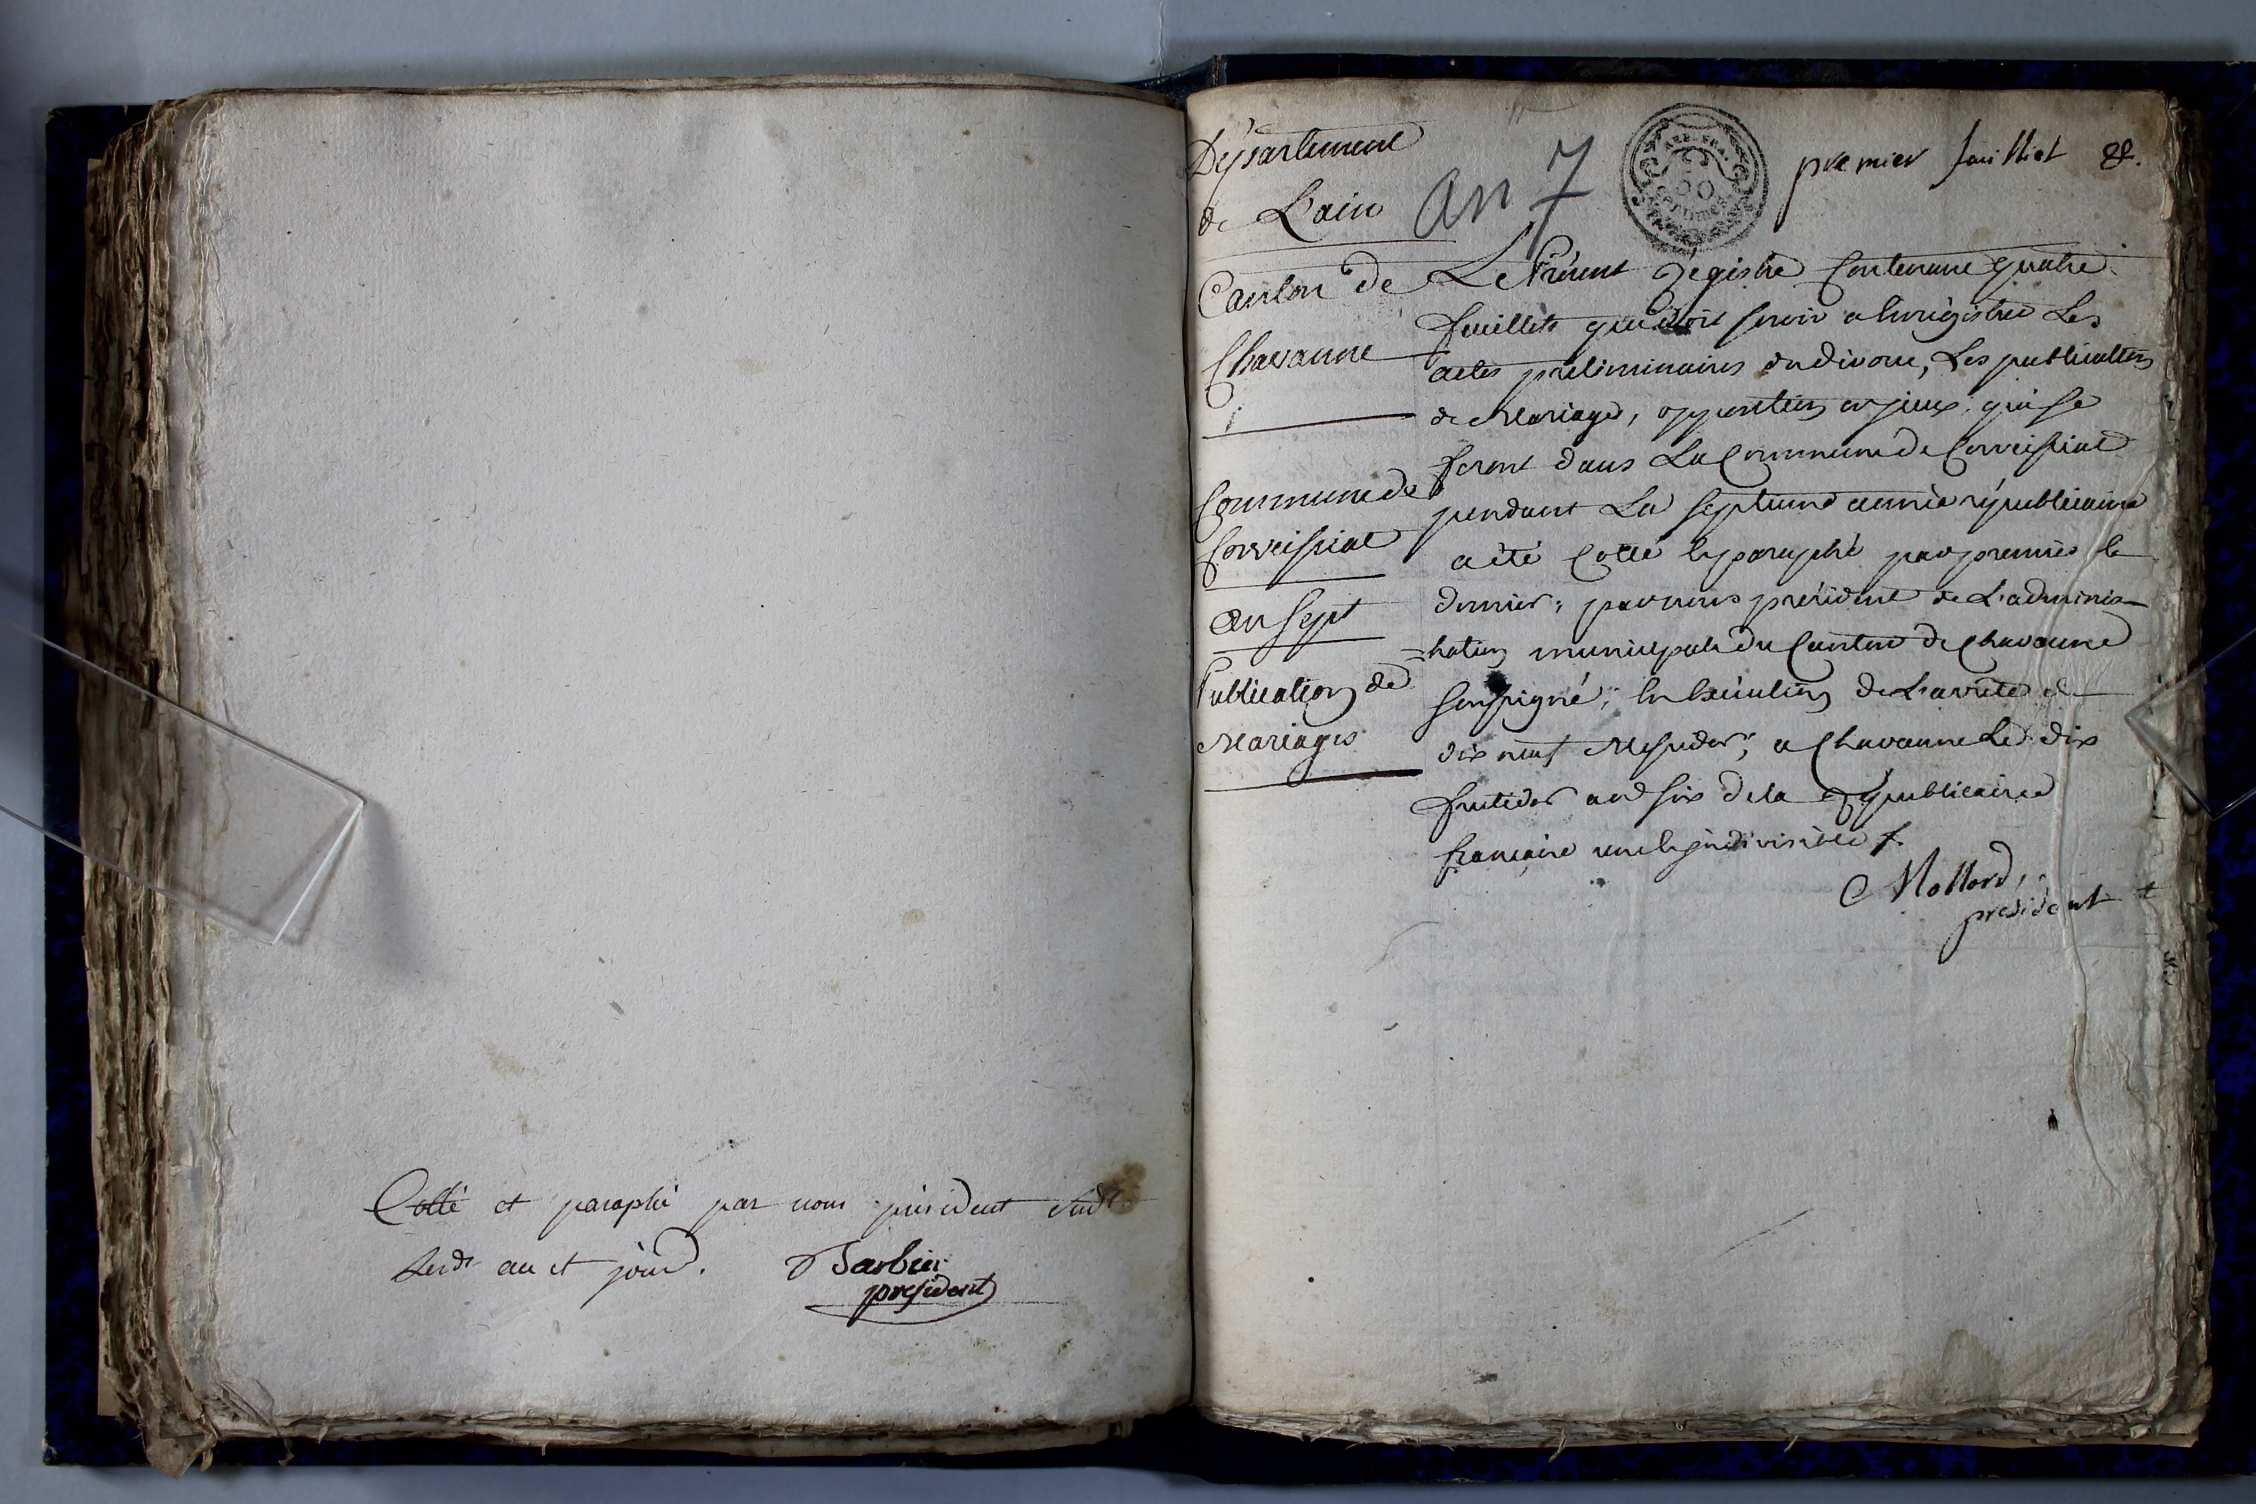 Cotté et paraphé par nous président sud.t
lesd. an et jour. Barbier
president
Département
de L'ain
Canton de
Chavanne
Commune de
Corveissiat
an sept
Publication de
Mariages
an 7
premier fuilliet &.
Le Présent registre Contenant quatre
feuillets qui doit servir a Enrégistrer Les
actes préliminaires du divorce, Les publications
de Mariage, oppositions en jceux, qui se
feront dans La Commune de Corveissiat
pendant La septieme année républicaine
a été Cotté & paraphé par premier &
dernier, par nous président de L'adminis-
=tration municipale du Canton de Chavanne
soussigné, En Exécution de L'arrêté du
dix neuf Messidor, a Chavanne Le dix
fructidor an six de la républicaine
française une & jndivisible /.
Mollard,
president